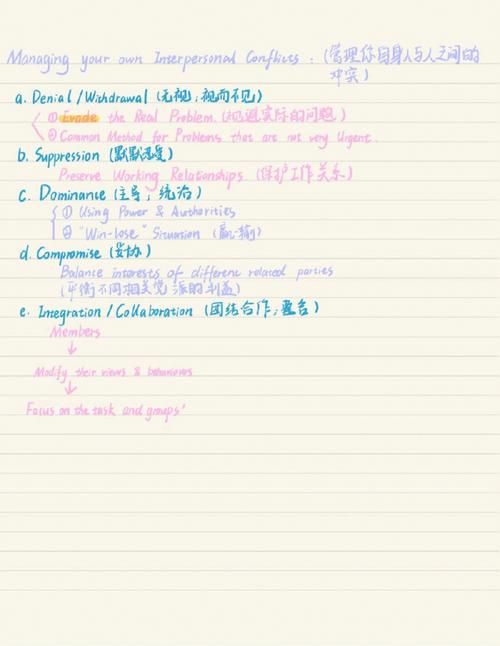 Managing your own Interpersonal Conflicts : (管理你自身人与人之间的
冲突)
a. Denial / Withdrawal (无视；视而不见)
① Evade the Real Problem. (规避实际的问题)
② Common Method for Problems that are not very Urgent.
b. Suppression (默默忍受)
Preserve Working Relationships. (保护工作关系)
c. Dominance (主导；统治)
① Using Power & Authorities
② "Win-lose" Situation (赢-输)
d. Compromise (妥协)
Balance interests of different related parties
(平衡不同相关党派的利益)
e. Integration / Collaboration (团结合作；整合)
Members
↓
Modify their views & behaviours
↓
Focus on the task and groups'